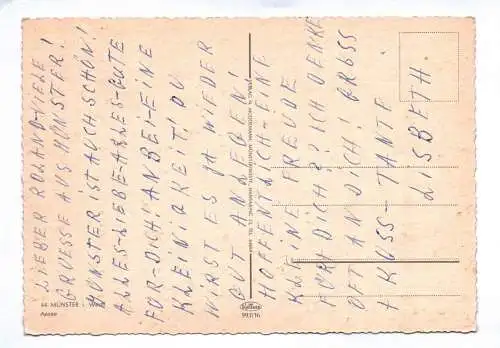 LIEBER ROLAND-VIELE
GRUESSE AUS MÜNSTER!
MÜNSTER IST AUCH SCHÖN!
ALLES-LIEBE-ALLES-GUTE
FÜR-DICH! ANBEI-EINE
KLEINIGKEIT! DU
WIRST ES JA WIEDER
GUT ANLEGEN!
HOFFENTLICH-EINE
KLEINE FREUDE
FÜR DICH?? ICH DENKE
OFT AN DICH! GRUSS
+ KUSS-TANTE
LISBETH.
44 MÜNSTER i. Westf.
Aasee
993/16